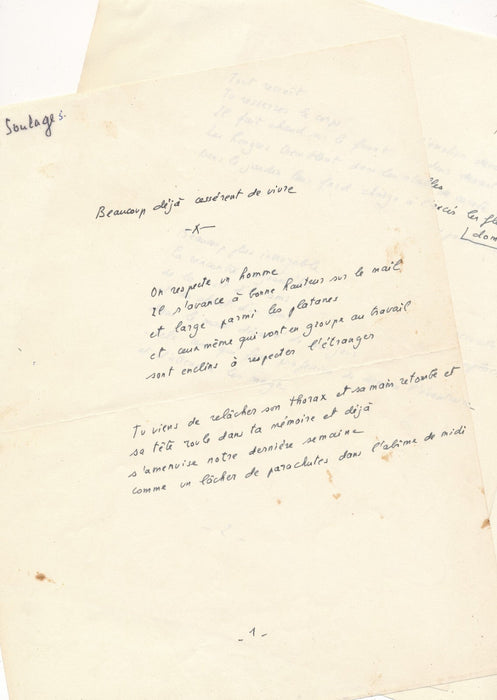 Soulages.
Beaucoup déjà cessèrent de vivre
-x-
On respecte un homme
Il s'avance à bonne hauteur sur le mail
et large parmi les platanes
et ceux même qui vont en groupe au travail
sont enclins à respecter l'étranger
Tu viens de relâcher son thorax et sa main retombe et
sa tête roule dans ta mémoire et déjà
s'amenuise notre dernière semaine
comme un lâcher de parachutes dans l'abîme de midi
- 1 -